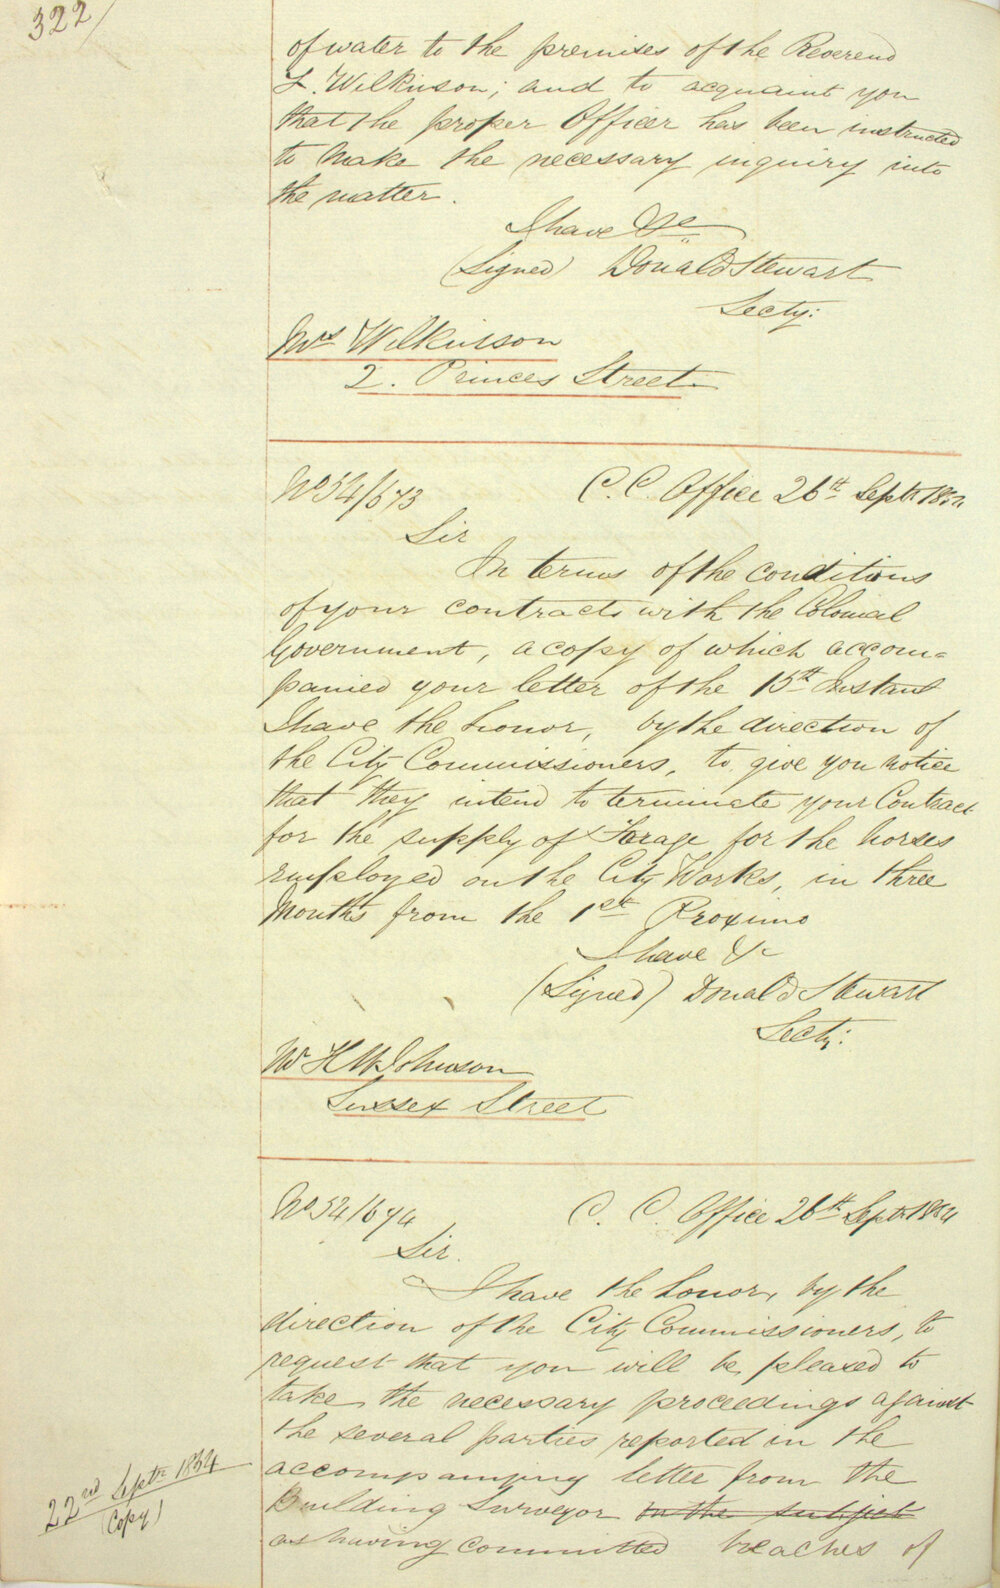 322/
of water to the premises of the Reverend
L. Wilkinson; and to acquaint you
that the proper Officer has been instructed
to make the necessary inquiry into
the matter.
I have &c
(Signed) Donald Stewart
Secty:
Mrs Wilkinson
2. Princes Street
No 54/673
C. C. Office 26th Septr 1854
Sir
In terms of the conditions
of your contracts with the Colonial
Government, a copy of which accom=
panied your letter of the 15th Instant
I have the honor, by the direction of
the City Commissioners, to give you notice
that they intend to terminate your Contract
for the supply of Forage for the horses
employed on the City Works, in three
Months from the 1st Proximo
I have &c
(Signed) Donald Stewart
Secty:
Mr H W Johnson
Sussex Street
No 54/674
C. C. Office 26th Septr 1854
Sir.
I have the honor, by the
direction of the City Commissioners, to
request that you will be pleased to
take the necessary proceedings against
the several parties reported in the
accompanying letter from the
22nd Septr 1854
(Copy)
Building Surveyor on the subject
as having committed breaches of